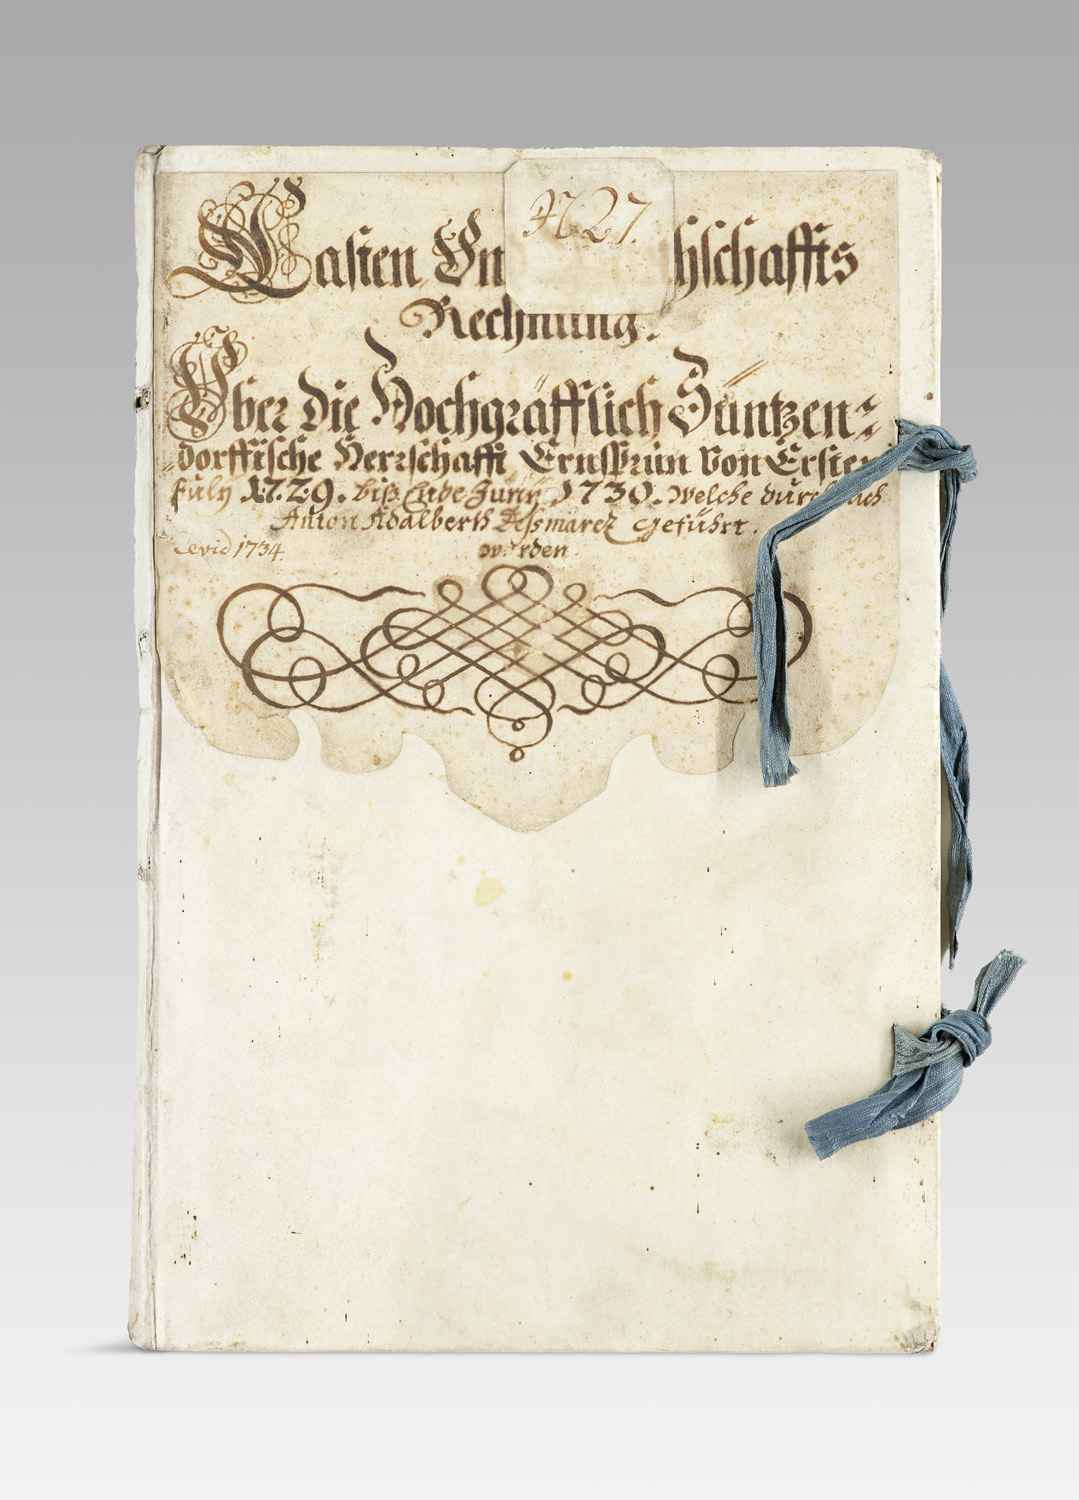 N 27.
Kasten Vn hschaffts
Rechnung.
Uber die Hochgräfflich Sintzen=
dorffische Herrschafft Ernstprun von Ersten
July 1729. biß Ende Juny 1730. welche durch
Anton Adalberth geführt.
Revid 1734.
worden